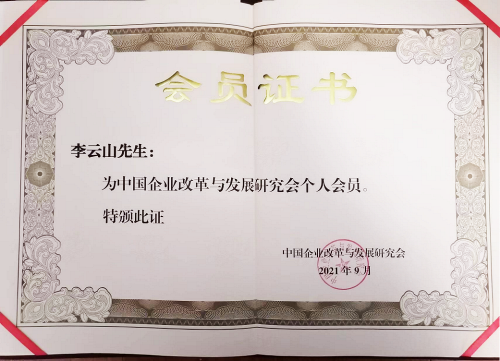 会员证书
李云山先生：
为中国企业改革与发展研究会个人会员。
特颁此证
中国企业改革与发展研究会
2021年9月